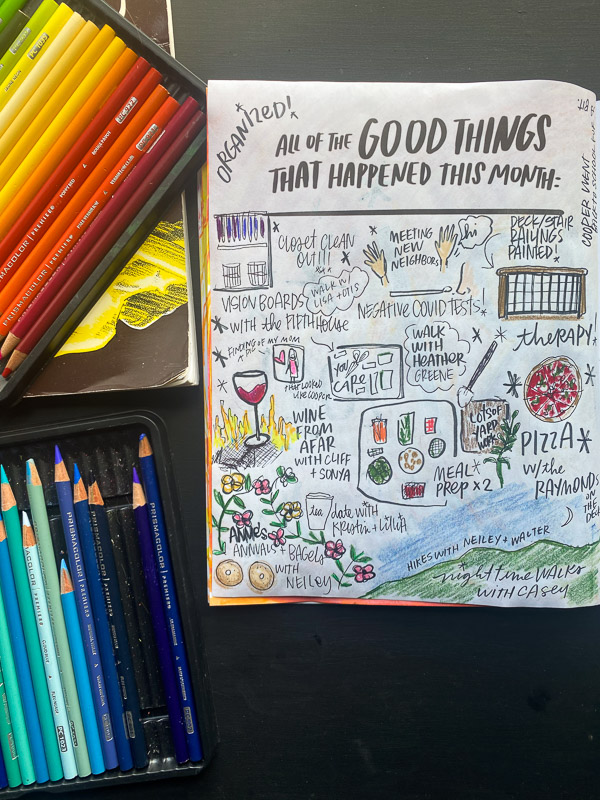 ORGANIZED!
ALL OF THE GOOD THINGS
THAT HAPPENED THIS MONTH:
COOPER WENT
CLOSET CLEAN
OUT!!!
MEETING
NEW
NEIGHBORS
hi
DECK/STAIR
RAILINGS
PAINTED!
WALK W/
LISA + OTIS
VISION BOARDS
WITH the FIFTH HOUSE
NEGATIVE COVID TESTS!
therapy!
FINDING OF MY MOM
THAT LOOKED
LIKE COOPER
YOU
CARE
WALK
WITH
HEATHER
GREENE
LOTS OF
YARD
WORK
WINE
FROM
AFAR
WITH CLIFF
+ SONYA
MEAL
PREP x 2
PIZZA
w/the
RAYMONDS
ON THE DECK
tea
date with
Kristin + Lillia
ANNE'S
ANNUALS +
BAGELS
WITH
NEILEY
HIKES WITH NEILEY + WALTER
night time WALKS
WITH CASEY
PRISMACOLOR PREMIER
PRISMACOLOR PREMIER
PRISMACOLOR PREMIER
PC 1023